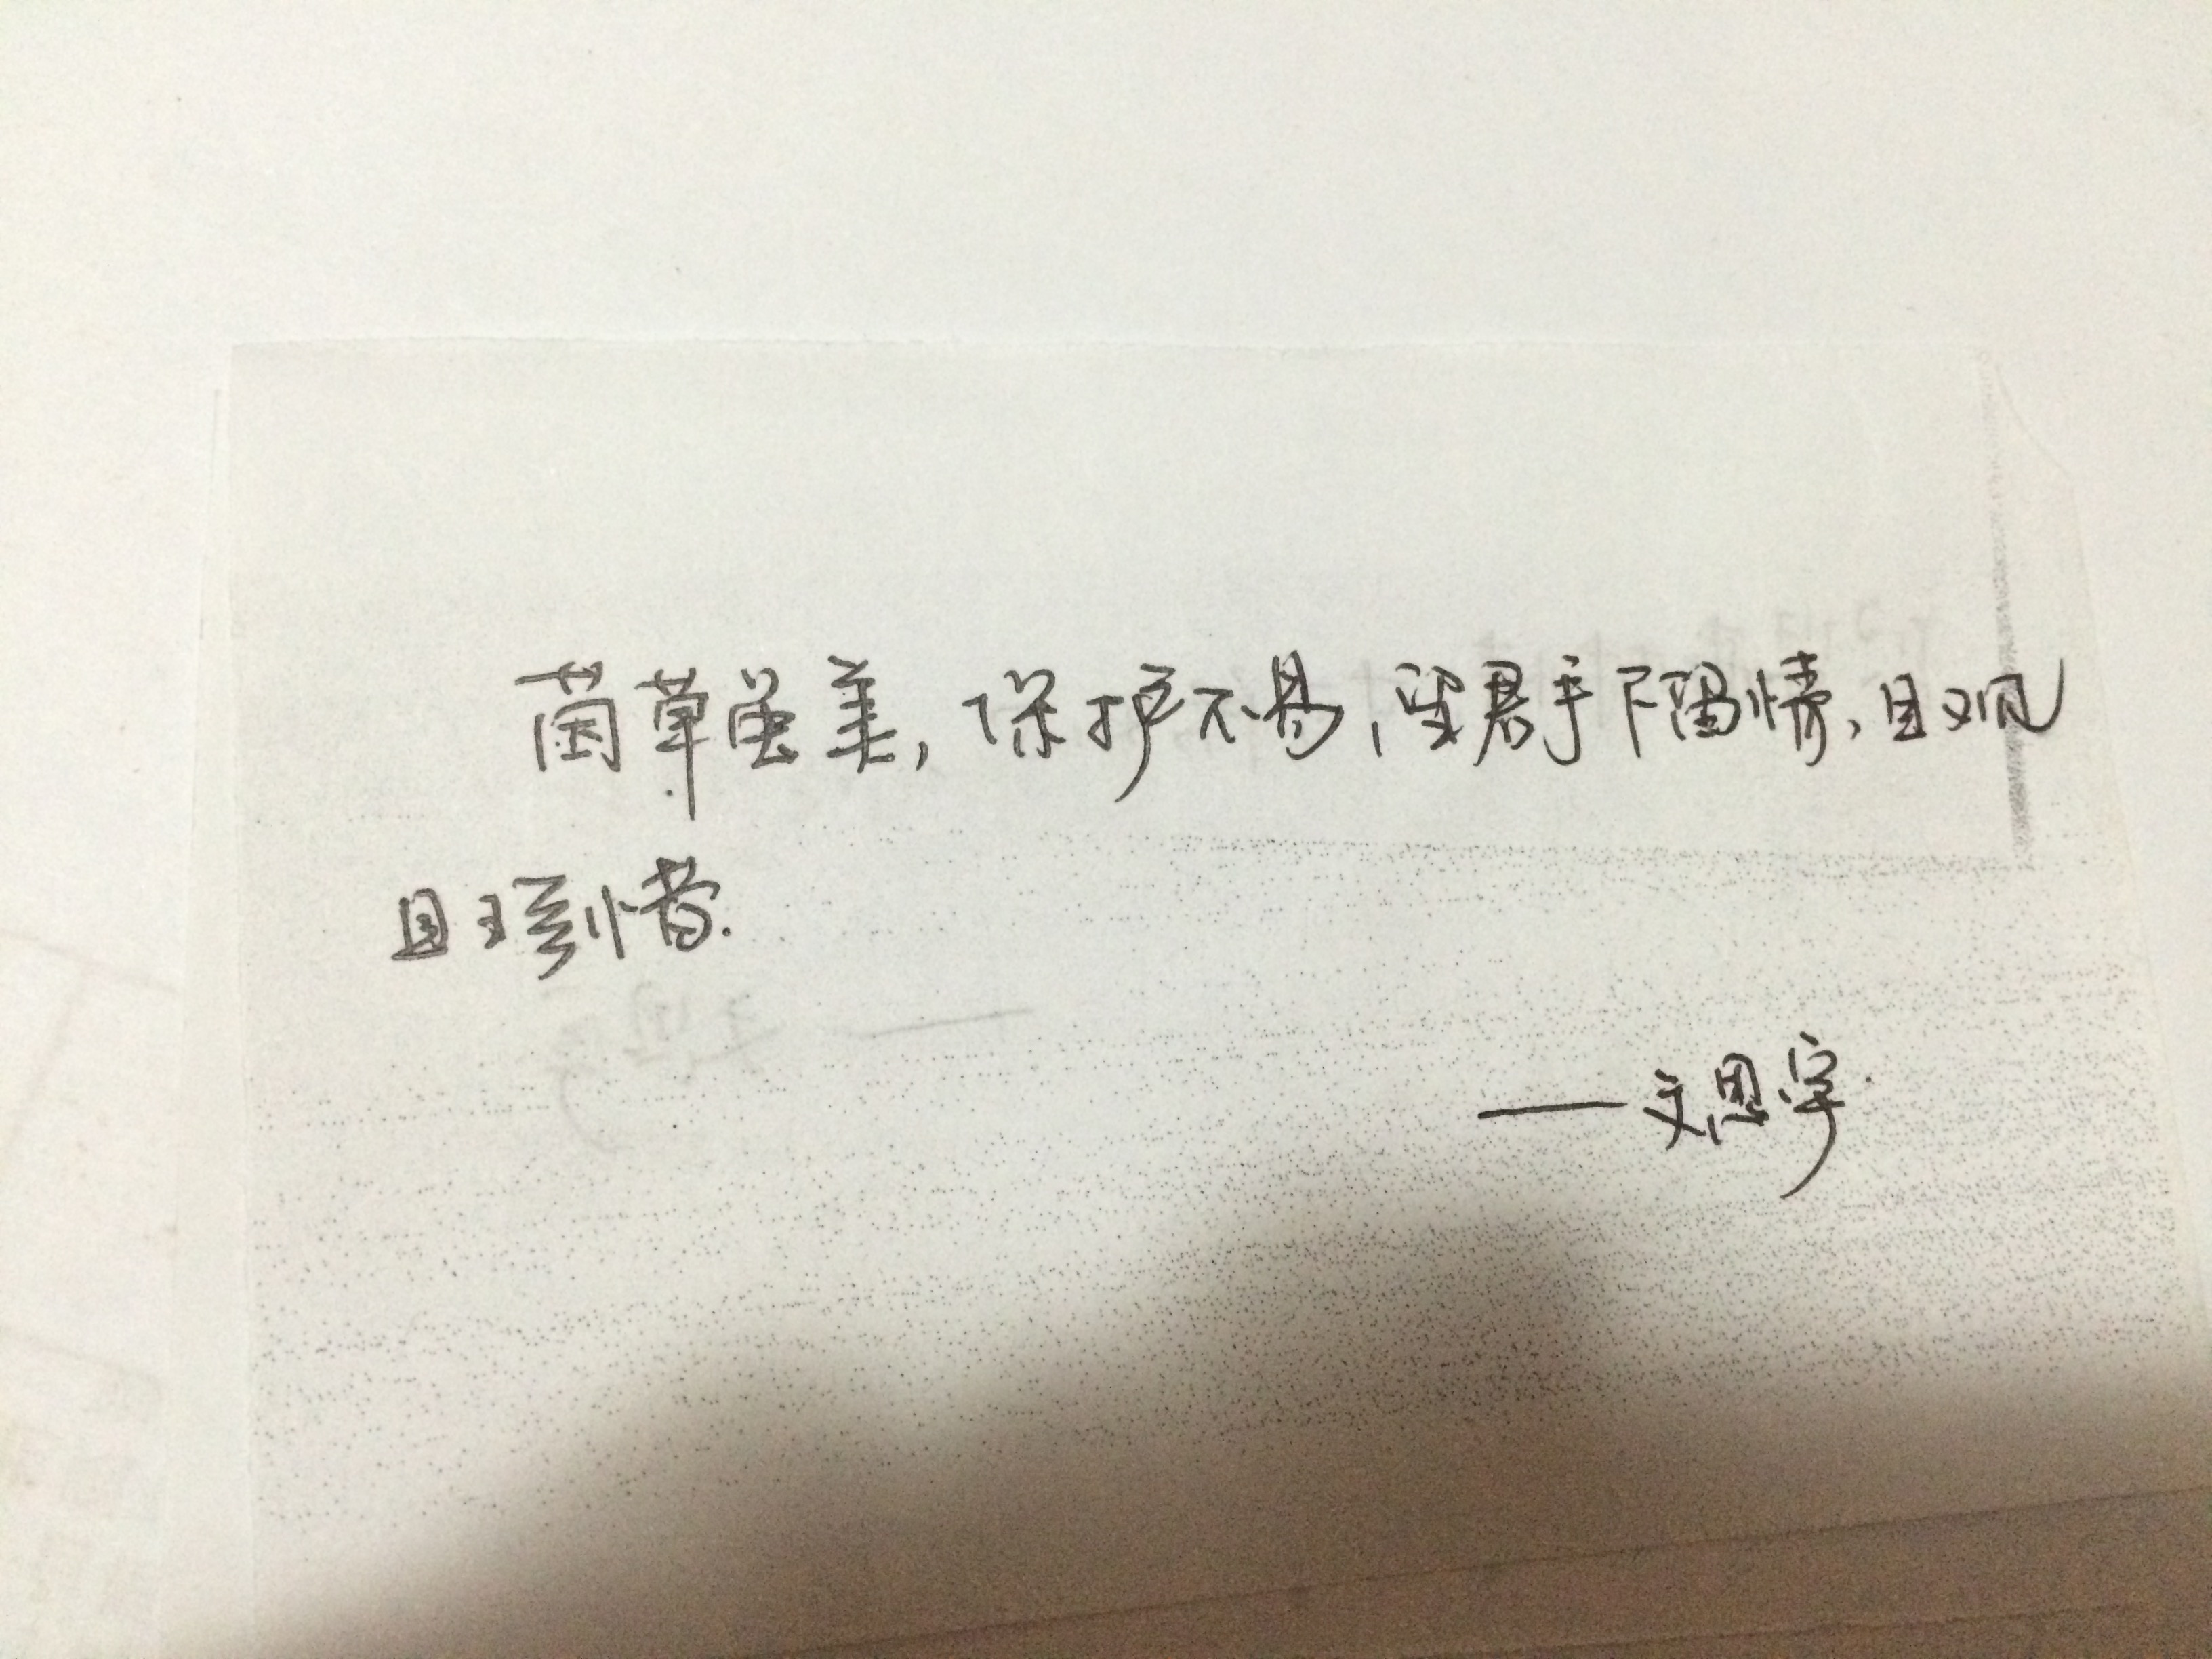 茵草虽美,保护不易,望君手下留情,且观
且珍惜.
——文思宇.